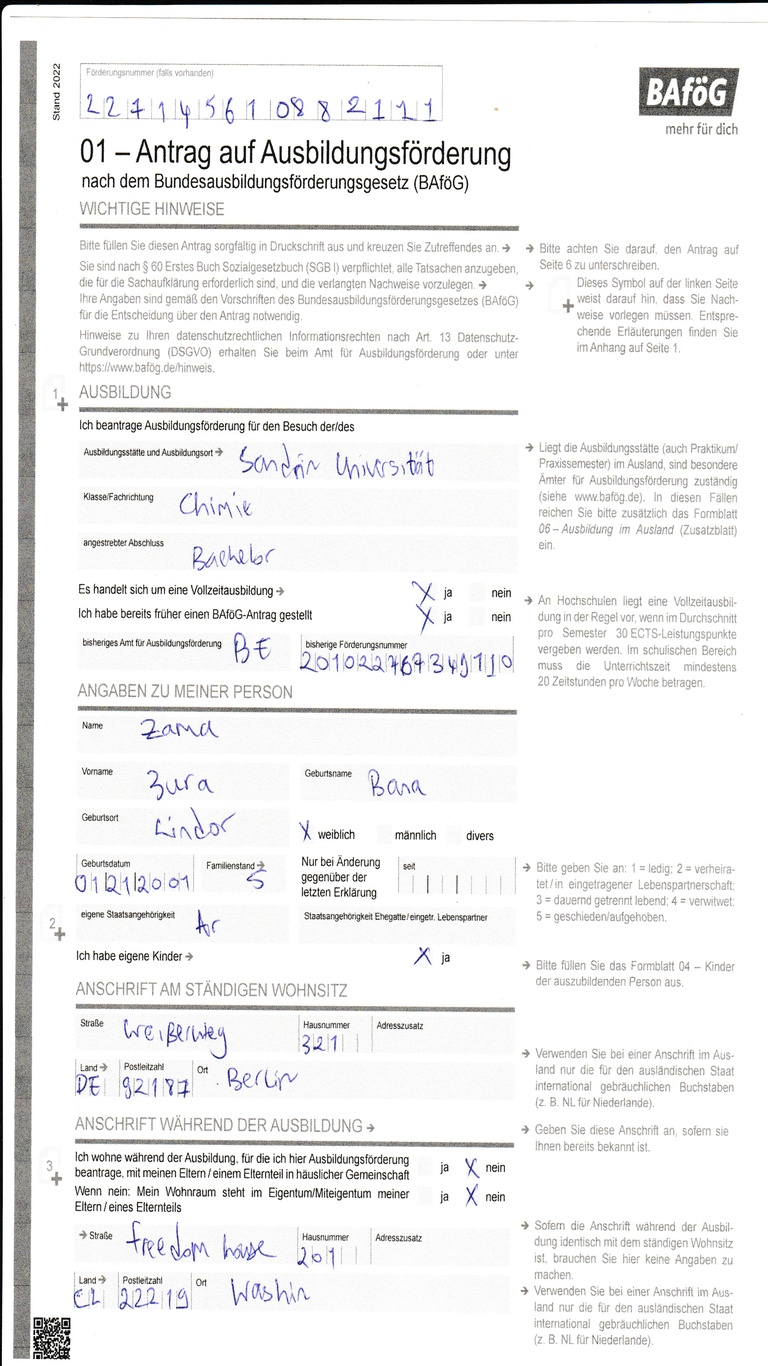 Stand 2022
Förderungsnummer (falls vorhanden)
227145610882111
BAföG
mehr für dich
01 – Antrag auf Ausbildungsförderung
nach dem Bundesausbildungsförderungsgesetz (BAföG)
WICHTIGE HINWEISE
Bitte füllen Sie diesen Antrag sorgfältig in Druckschrift aus und kreuzen Sie Zutreffendes an. →
Sie sind nach § 60 Erstes Buch Sozialgesetzbuch (SGB I) verpflichtet, alle Tatsachen anzugeben,
die für die Sachaufklärung erforderlich sind, und die verlangten Nachweise vorzulegen. →
Ihre Angaben sind gemäß den Vorschriften des Bundesausbildungsförderungsgesetzes (BAföG)
für die Entscheidung über den Antrag notwendig.
Hinweise zu Ihren datenschutzrechtlichen Informationsrechten nach Art. 13 Datenschutz-
Grundverordnung (DSGVO) erhalten Sie beim Amt für Ausbildungsförderung oder unter
https://www.bafög.de/hinweis.
→ Bitte achten Sie darauf, den Antrag auf
Seite 6 zu unterschreiben.
→ Dieses Symbol auf der linken Seite
weist darauf hin, dass Sie Nach-
weise vorlegen müssen. Entspre-
chende Erläuterungen finden Sie
im Anhang auf Seite 1.
1+ AUSBILDUNG
Ich beantrage Ausbildungsförderung für den Besuch der/des
Ausbildungsstätte und Ausbildungsort → Sandrin Universität
Klasse/Fachrichtung Chimie
angestrebter Abschluss Bachelor
→ Liegt die Ausbildungsstätte (auch Praktikum/
Praxissemester) im Ausland, sind besondere
Ämter für Ausbildungsförderung zuständig
(siehe www.bafög.de). In diesen Fällen
reichen Sie bitte zusätzlich das Formblatt
06 – Ausbildung im Ausland (Zusatzblatt)
ein.
Es handelt sich um eine Vollzeitausbildung → X ja nein
Ich habe bereits früher einen BAföG-Antrag gestellt X ja nein
bisheriges Amt für Ausbildungsförderung BE bisherige Förderungsnummer
201022767349110
→ An Hochschulen liegt eine Vollzeitausbil-
dung in der Regel vor, wenn im Durchschnitt
pro Semester 30 ECTS-Leistungspunkte
vergeben werden. Im schulischen Bereich
muss die Unterrichtszeit mindestens
20 Zeitstunden pro Woche betragen.
ANGABEN ZU MEINER PERSON
Name Zamd
Vorname Zura Geburtsname Bana
Geburtsort Lindor X weiblich männlich divers
Geburtsdatum 01212001 Familienstand → 5 Nur bei Änderung
gegenüber der
letzten Erklärung seit
→ Bitte geben Sie an: 1 = ledig; 2 = verheira-
tet/in eingetragener Lebenspartnerschaft;
3 = dauernd getrennt lebend; 4 = verwitwet;
5 = geschieden/aufgehoben.
2+ eigene Staatsangehörigkeit Ar Staatsangehörigkeit Ehegatte/eingetr. Lebenspartner
Ich habe eigene Kinder → X ja
→ Bitte füllen Sie das Formblatt 04 – Kinder
der auszubildenden Person aus.
ANSCHRIFT AM STÄNDIGEN WOHNSITZ
Straße Weißerweg Hausnummer 321 Adresszusatz
Land → DE Postleitzahl 92187 Ort Berlin
→ Verwenden Sie bei einer Anschrift im Aus-
land nur die für den ausländischen Staat
international gebräuchlichen Buchstaben
(z. B. NL für Niederlande).
ANSCHRIFT WÄHREND DER AUSBILDUNG →
→ Geben Sie diese Anschrift an, sofern sie
Ihnen bereits bekannt ist.
3+ Ich wohne während der Ausbildung, für die ich hier Ausbildungsförderung
beantrage, mit meinen Eltern / einem Elternteil in häuslicher Gemeinschaft ja X nein
Wenn nein: Mein Wohnraum steht im Eigentum/Miteigentum meiner
Eltern / eines Elternteils ja X nein
→ Straße freedom house Hausnummer 201 Adresszusatz
Land → CL Postleitzahl 22219 Ort Washin
→ Sofern die Anschrift während der Ausbil-
dung identisch mit dem ständigen Wohnsitz
ist, brauchen Sie hier keine Angaben zu
machen.
→ Verwenden Sie bei einer Anschrift im Aus-
land nur die für den ausländischen Staat
international gebräuchlichen Buchstaben
(z. B. NL für Niederlande).